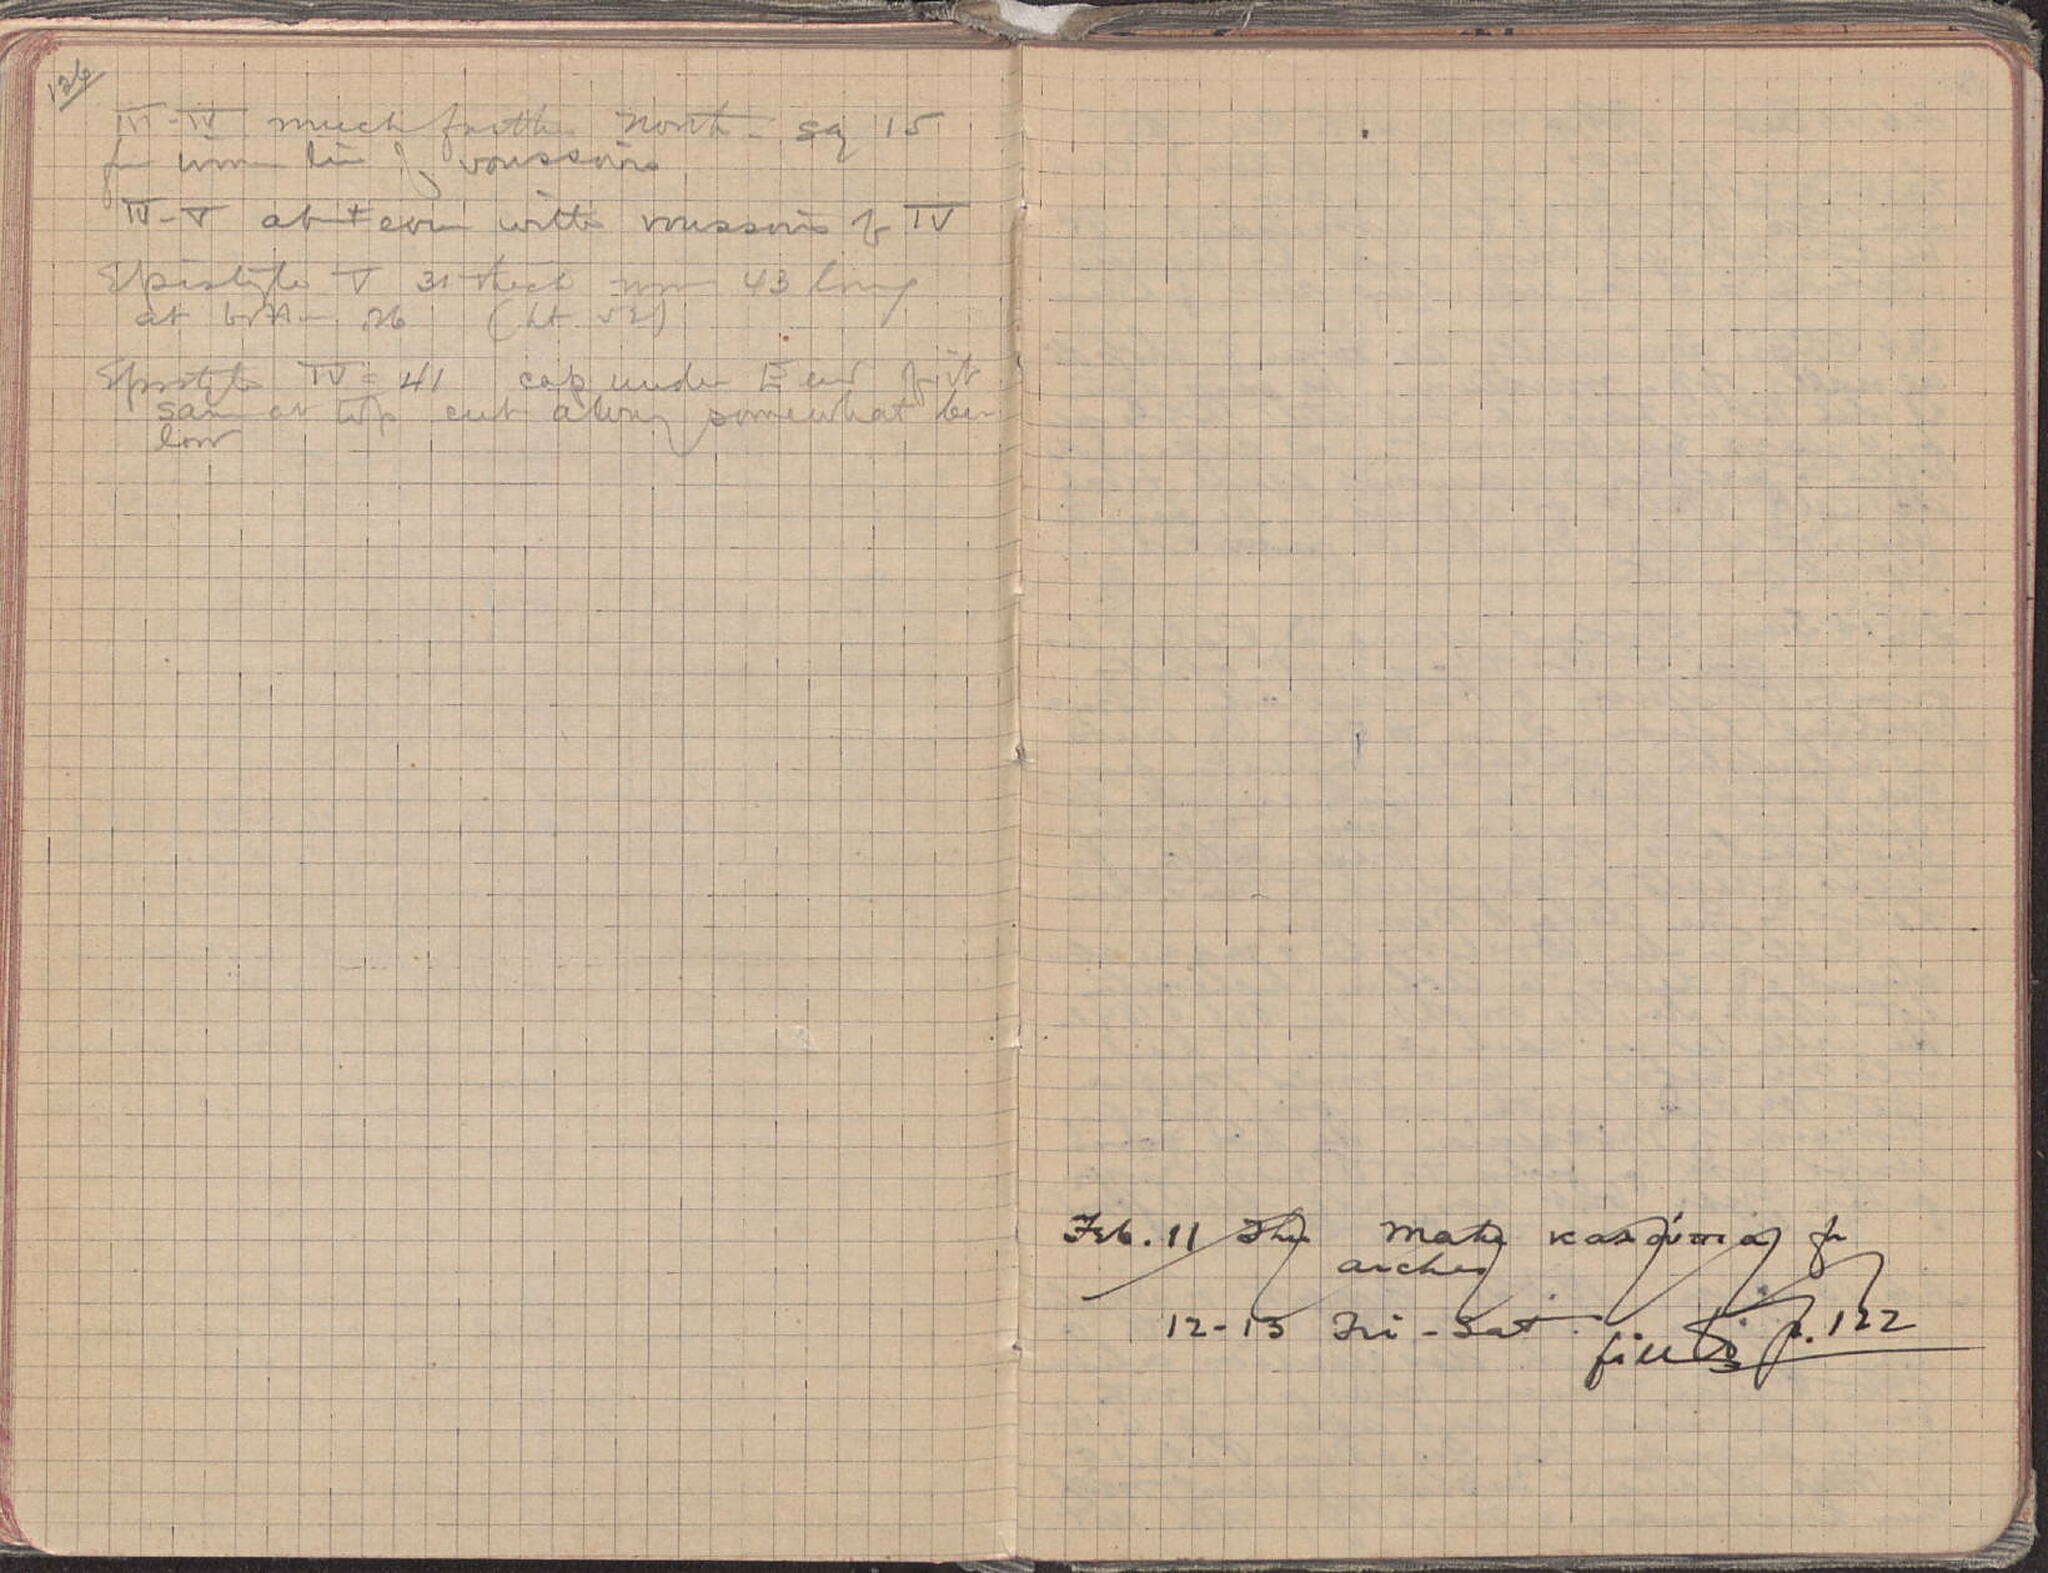 126
III-IV much further North - say 15
from inner line of voussoirs
IV-V about even with voussoirs of IV
Epistyle V 31 thick now 43 long
at bottom .26 (ht 52)
Epistyle IV = 41 cap under E end fit
same at top cut along somewhat be
low
Feb. 11 Thu Make for
arches
12-13 Fri - Sat.
p. 122